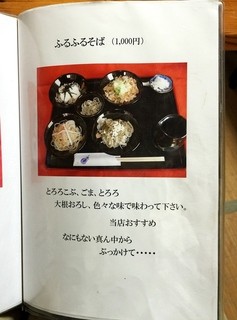 ふるふるそば （1,000円）
とろろこぶ、ごま、とろろ
大根おろし、色々な味で味わって下さい。
当店おすすめ
なにもない真ん中から
ぶっかけて・・・・・